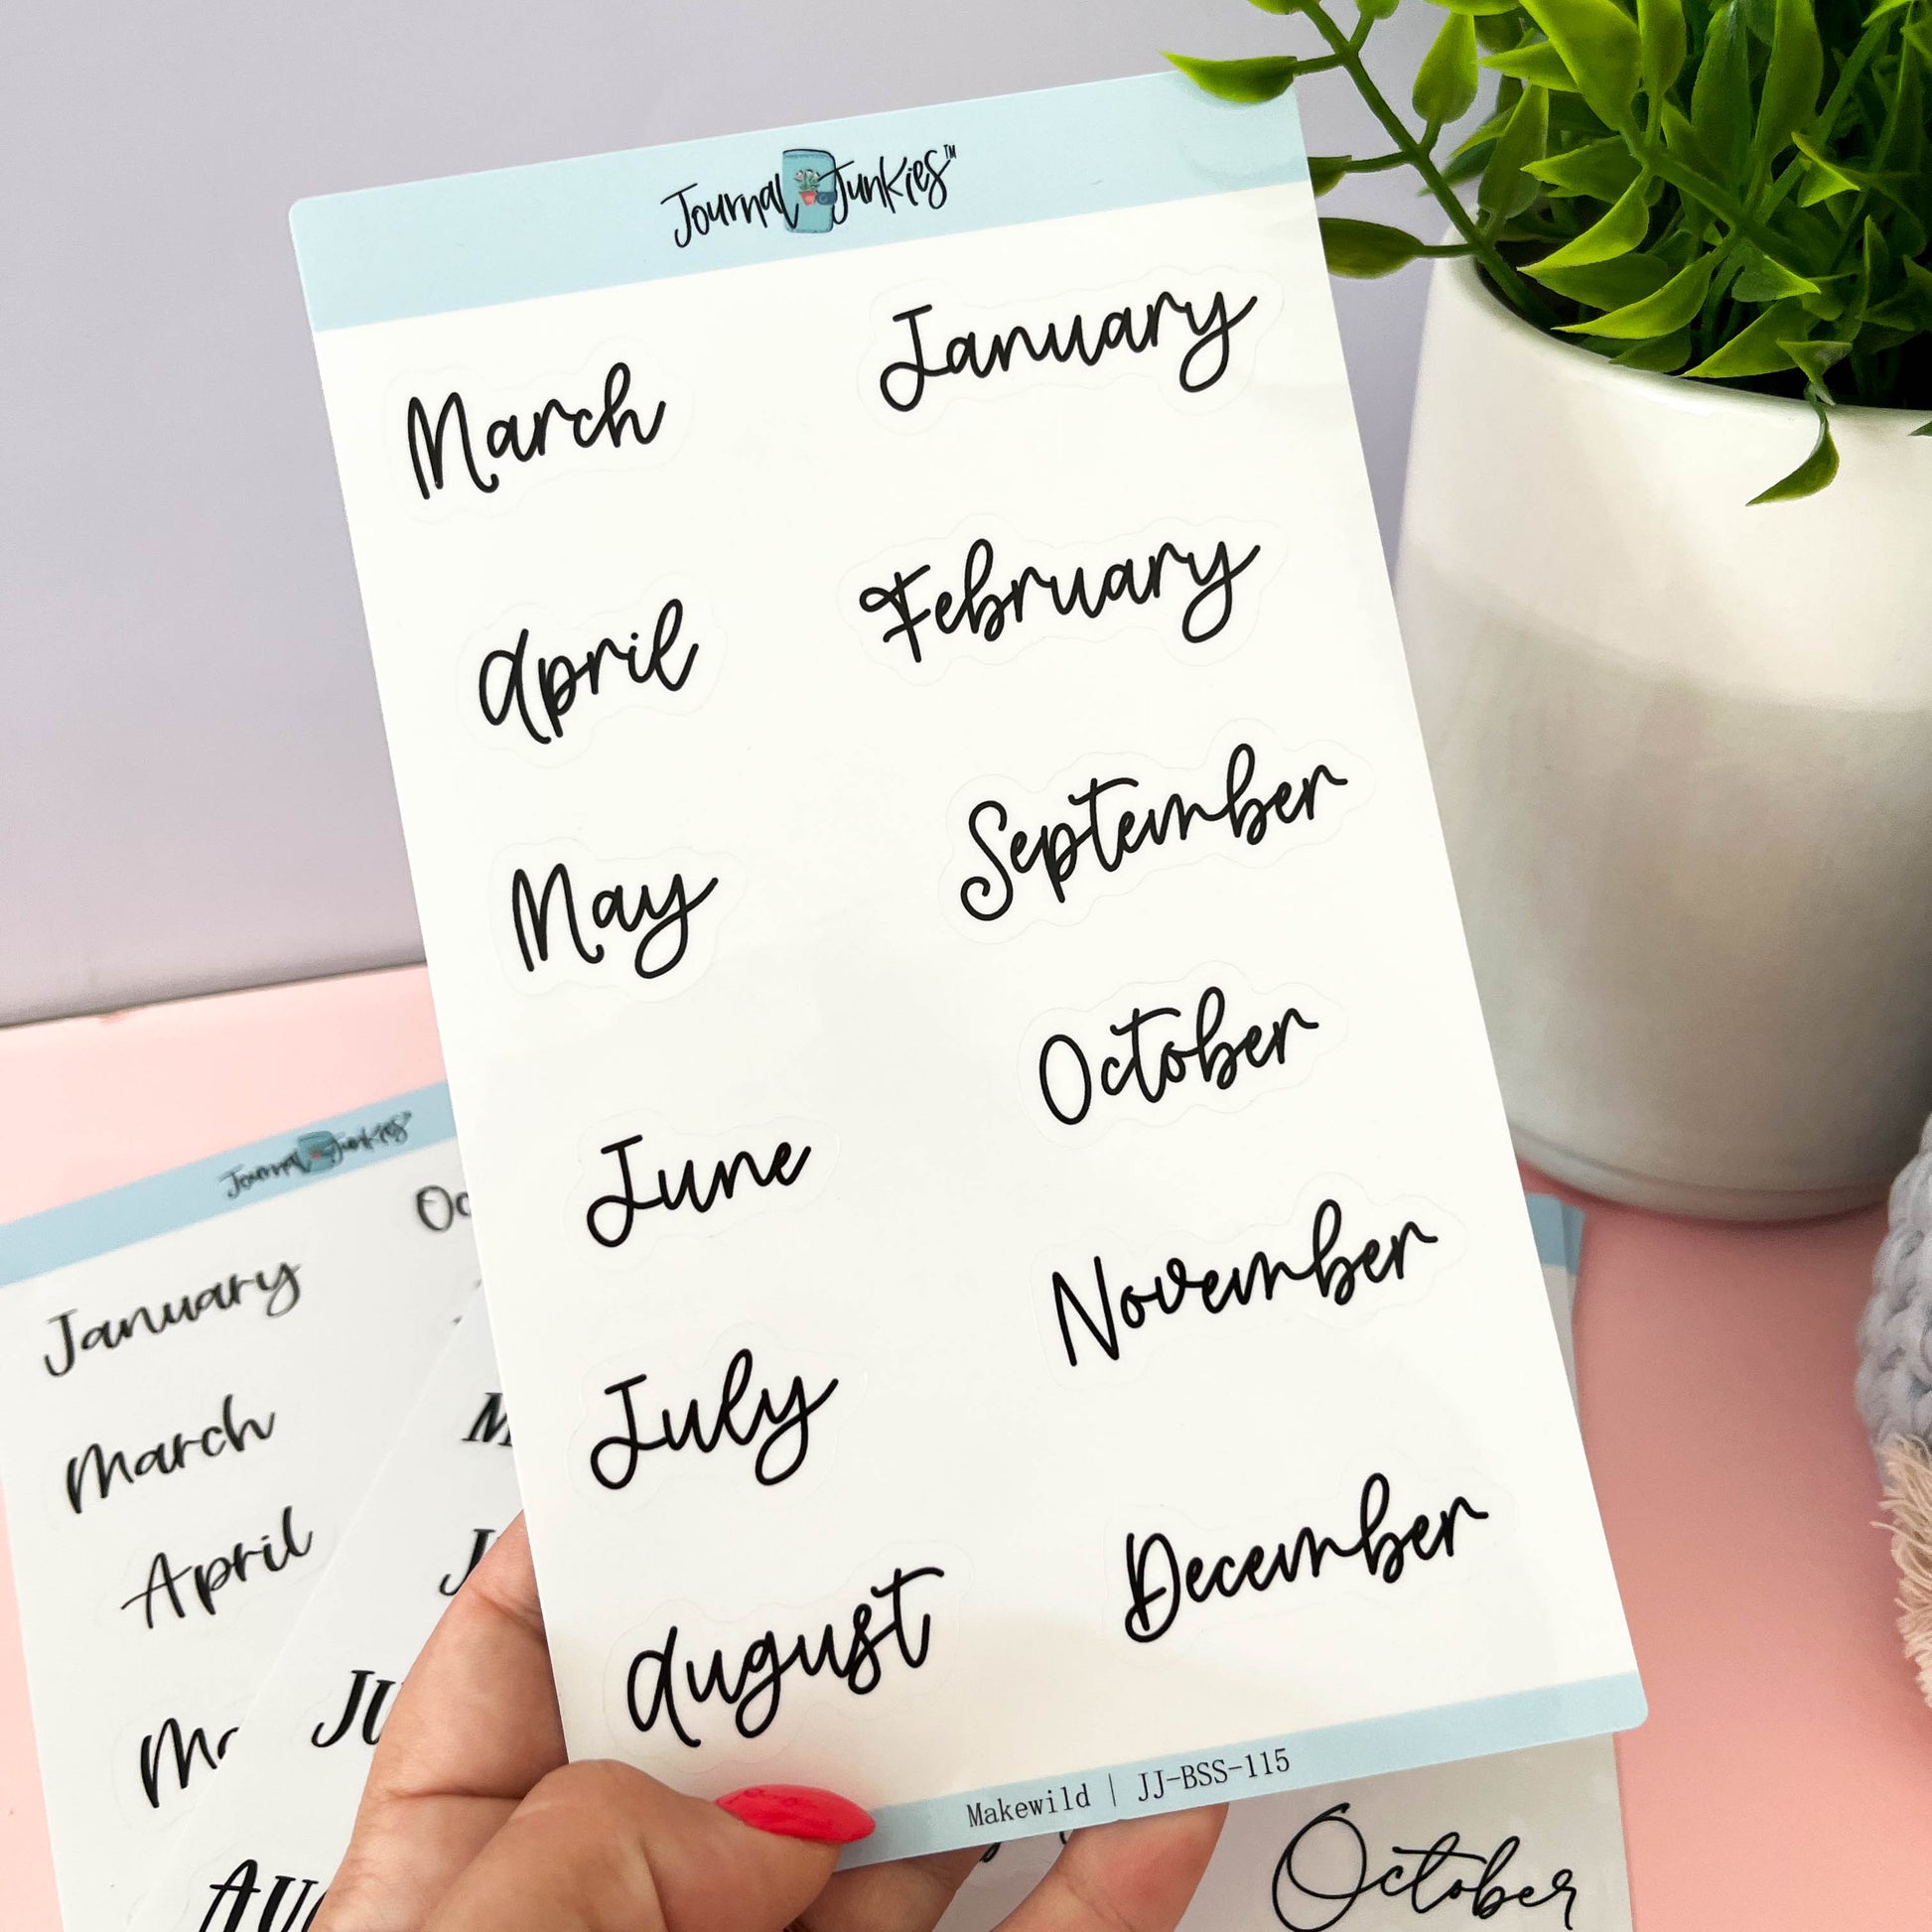 Journal Junkies™
March
January
April
February
May
September
October
June
November
July
December
August
Makewild | JJ-BSS-115
Journal Junkies
January
March
April
October